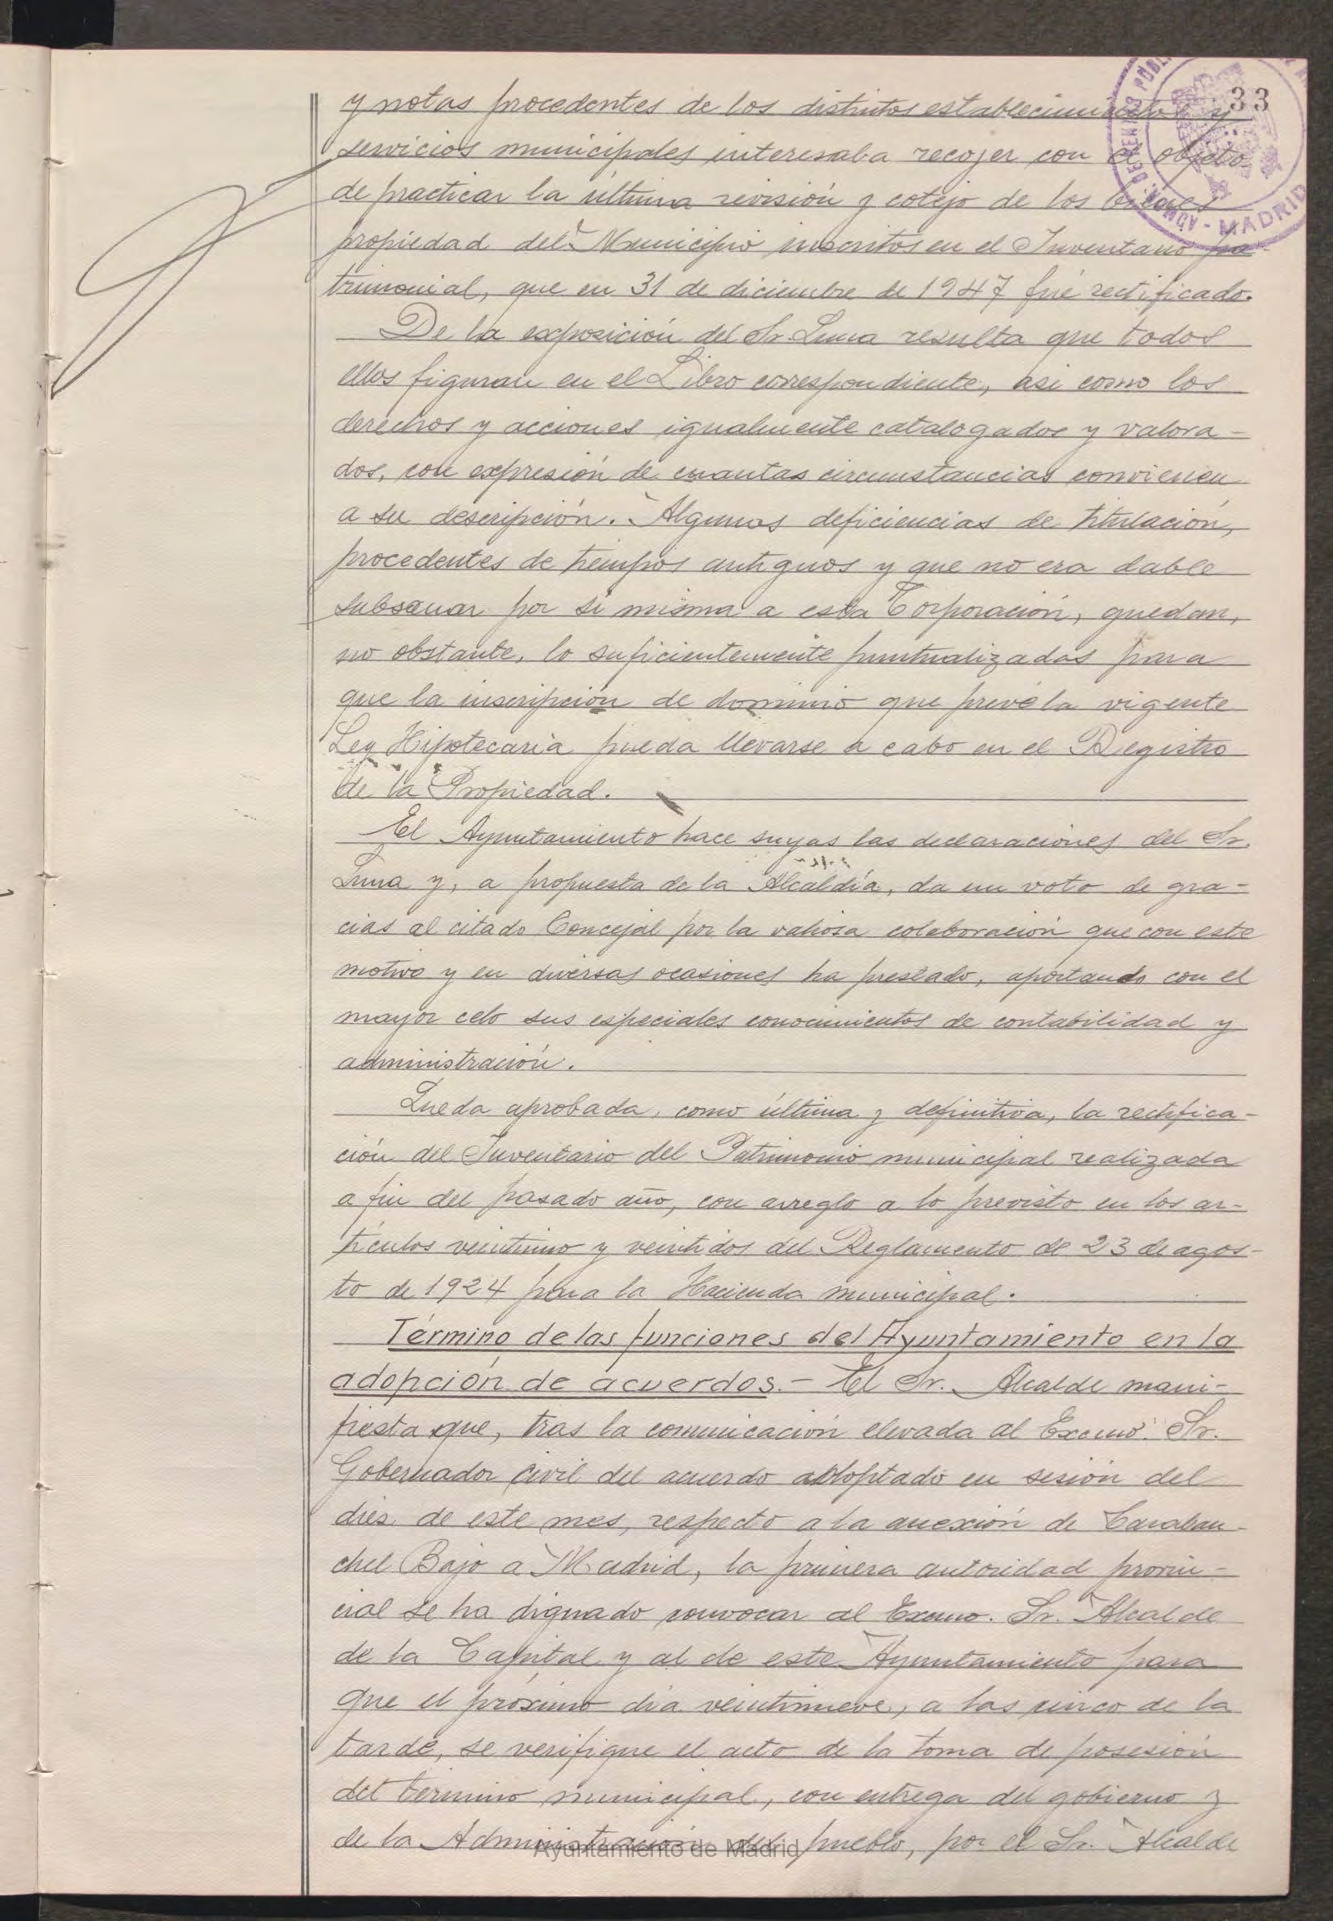 33
y notas procedentes de los distintos establecimientos y
servicios municipales interesaba recojer con el objeto
de practicar la última revisión y cotejo de los bienes
propiedad del Municipio inscritos en el Inventario pa-
trimonial, que en 31 de diciembre de 1947 fué rectificado.
De la exposición del Sr. Luna resulta que todos
ellos figuran en el Libro correspondiente, asi como los
derechos y acciones igualmente catalogados y valora-
dos, con expresión de cuantas circunstancias convienen
a su descripción. Algunas deficiencias de titulación,
procedentes de tiempos antiguos y que no era dable
subsanar por si misma a esta Corporación, quedan,
no obstante, lo suficientemente puntualizadas para
que la inscripción de dominio que prevé la vigente
Ley Hipotecaria pueda llevarse a cabo en el Registro
de la Propiedad.
El Ayuntamiento hace suyas las declaraciones del Sr.
Luna y, a propuesta de la Alcaldía, da un voto de gra-
cias al citado Concejal por la valiosa colaboración que con este
motivo y en diversas ocasiones ha prestado, aportando con el
mayor celo sus especiales conocimientos de contabilidad y
administración.
Queda aprobada, como última y definitiva, la rectifica-
ción del Inventario del Patrimonio municipal realizada
a fin del pasado año, con arreglo a lo previsto en los ar-
tículos veintiuno y veintidos del Reglamento de 23 de agos-
to de 1924 para la Hacienda municipal.
Término de las funciones del Ayuntamiento en la
adopción de acuerdos.- El Sr. Alcalde mani-
fiesta que, tras la comunicación elevada al Excmo. Sr.
Gobernador civil del acuerdo adoptado en sesión del
dies de este mes, respecto a la anexión de Caraban-
chel Bajo a Madrid, la primera autoridad provin-
cial se ha dignado convocar al Excmo. Sr. Alcalde
de la Capital y al de este Ayuntamiento para
que el próximo día veintinueve, a las cinco de la
tarde, se verifique el acto de la toma de posesión
del término municipal, con entrega del gobierno y
de la Administración del pueblo, por el Sr. Alcalde
Ayuntamiento de Madrid
MADRID